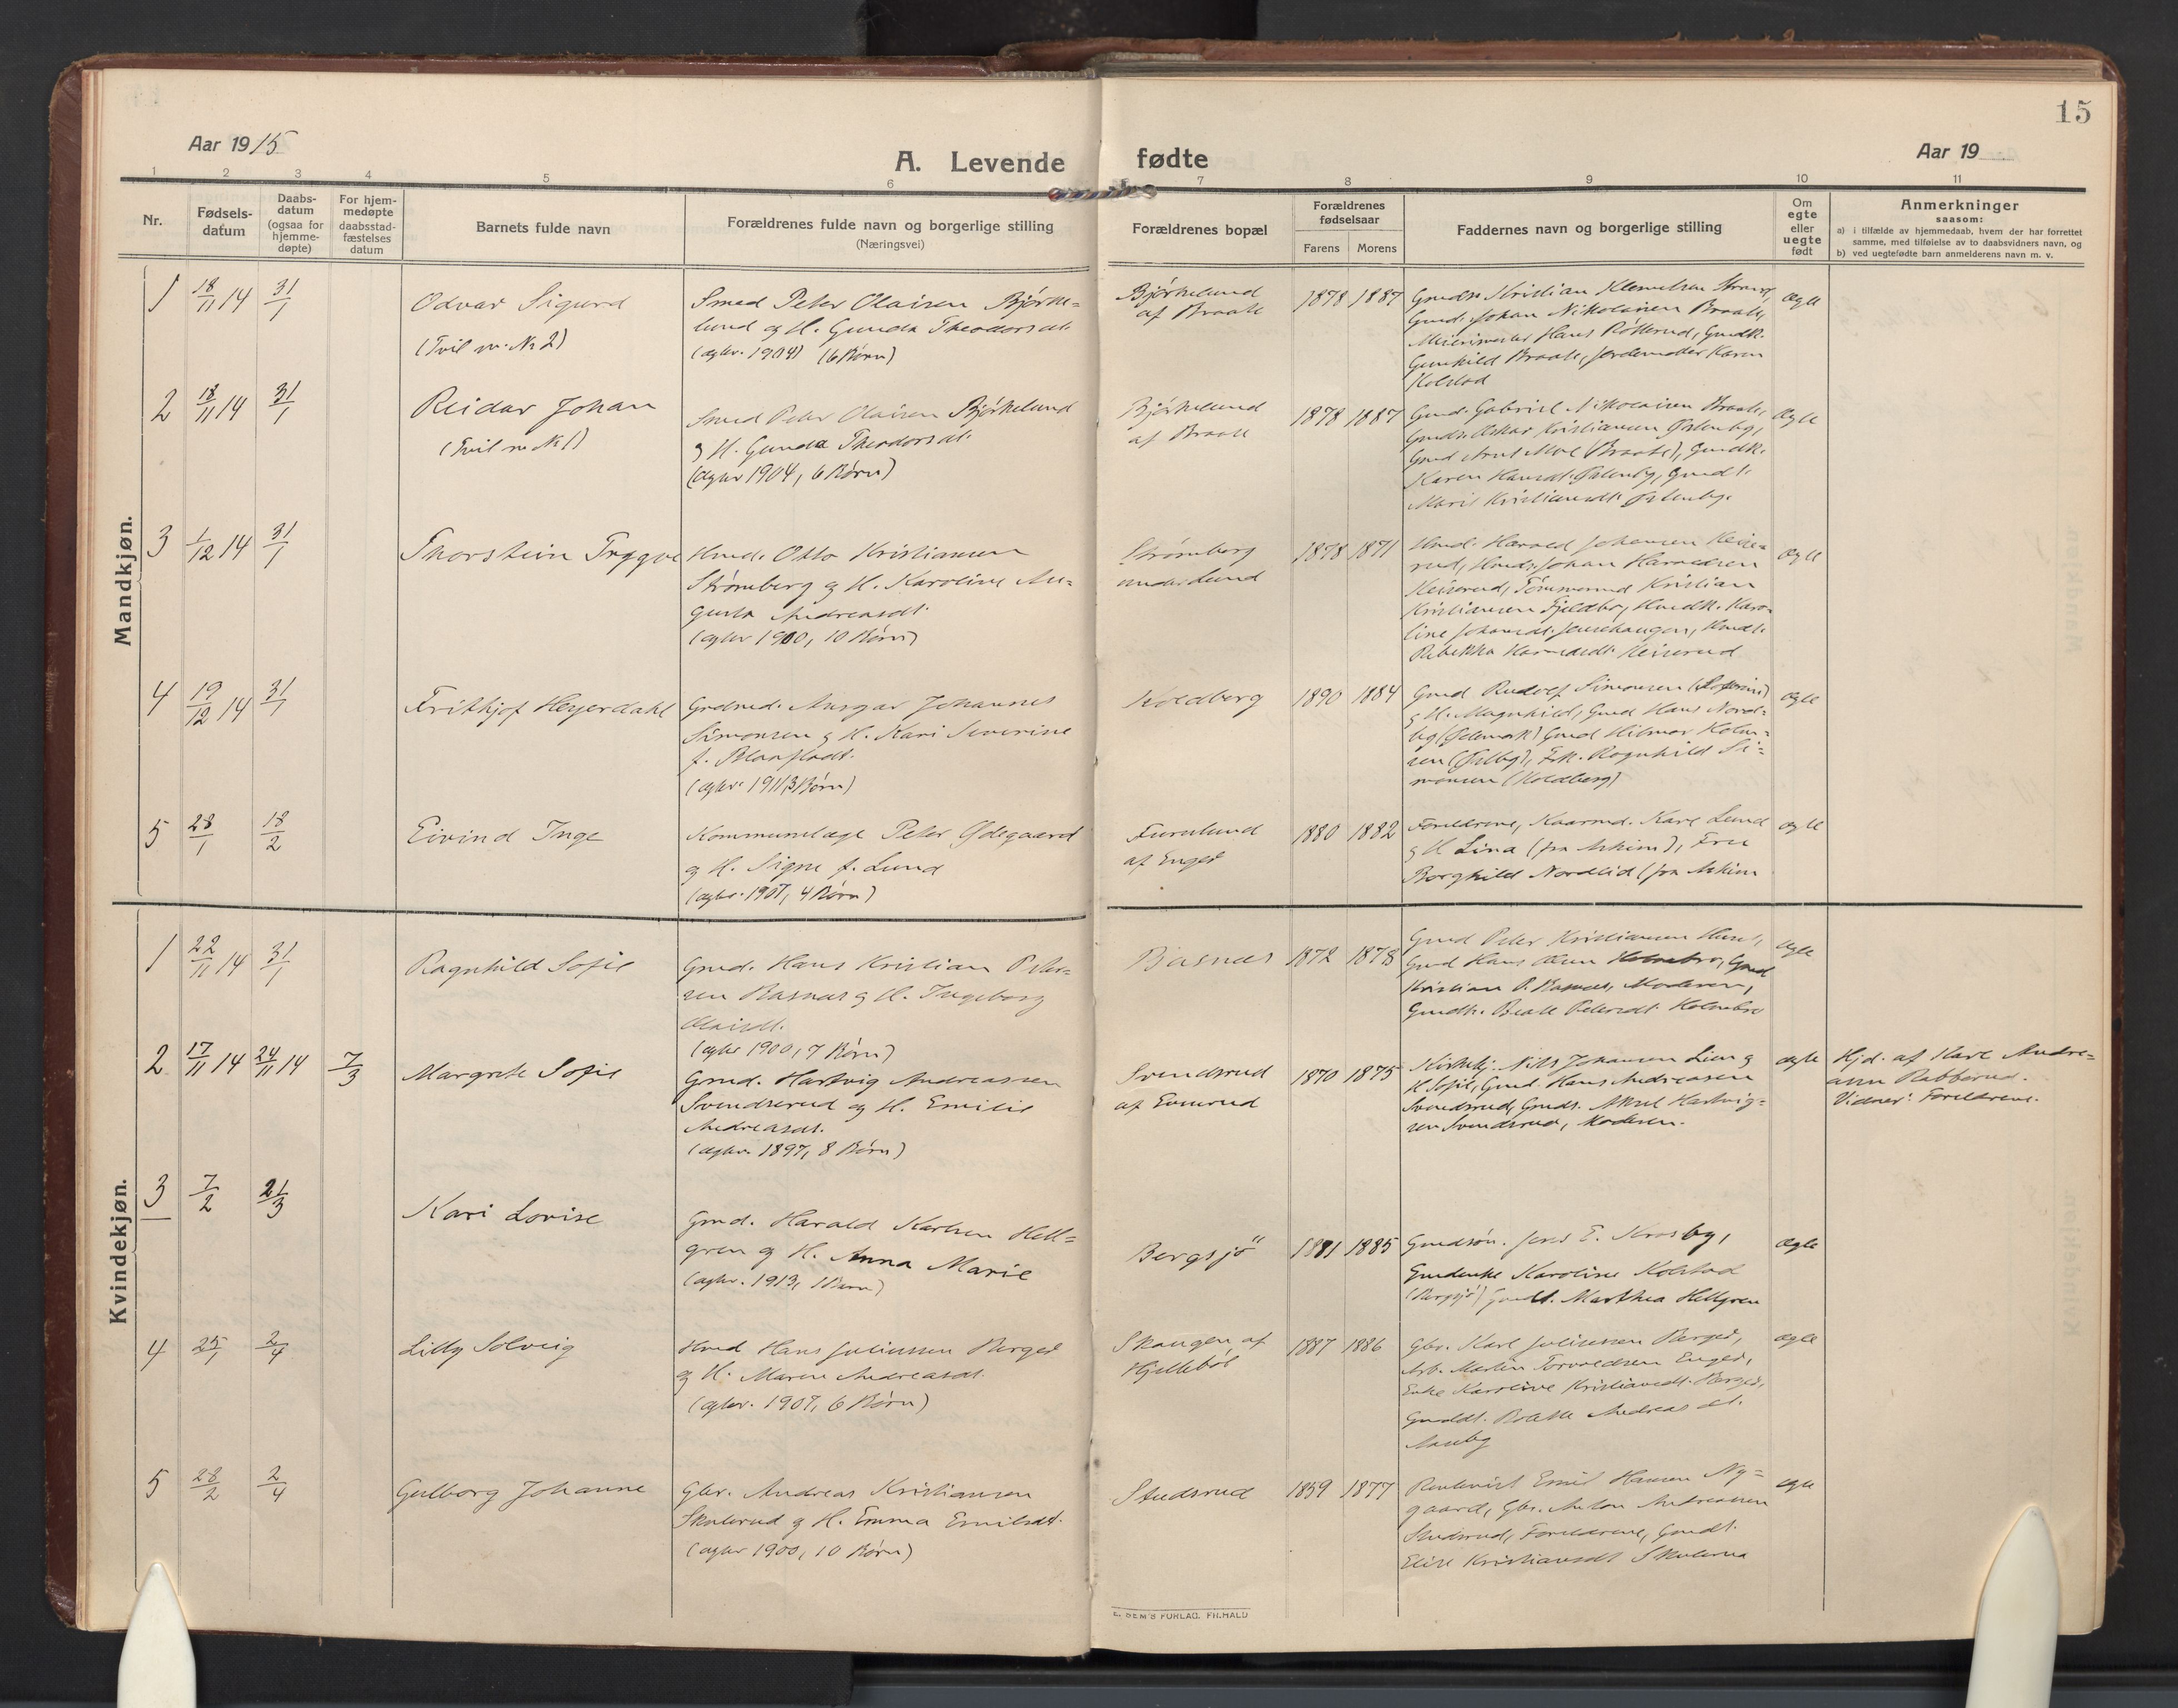 15
Aar 1915
A. Levende fødte
Aar 19
1 2 3 4 5 6 7 8 9 10 11
Nr.
Fødsels-
datum
Daabs-
datum
(ogsaa for
hjemme-
døpte)
For hjem-
medøpte
daabsstad-
fæstelses
datum
Barnets fulde navn
Forældrenes fulde navn og borgerlige stilling
(Næringsvei)
Forældrenes bopæl
Forældrenes
fødselsaar
Farens Morens
Faddernes navn og borgerlige stilling
Om
egte
eller
uegte
født
Anmerkninger
saasom:
a) i tilfælde av hjemmedaab, hvem der har forrettet
samme, med tilføielse av to daabsvidners navn, og
b) ved uegtefødte barn anmelderens navn m. v.
Mandkjøn.
1 18/11 14 31/1
Odvar Sigurd
(Tvil m. No 2)
Smed Peter Olaisen Bjørke-
lund og H. Gunda Theodorsdt.
(egtev. 1904) (6 Børn)
Bjørkelund
af Braate
1878 1887
Gmds. Kristian Klemetsen
Gmd. Johan Nikolaisen Braate,
Meierimester Hans Røtterud, Gmdk.
Gunhild Braate, Jordemoder Karen
Kolstad
Ægte
2 18/11 14 31/1
Reidar Johan
(Tvil m No 1)
Smed Peter Olaisen Bjørkelund
og H. Gunda Theodorsdt.
(Egtev 1904, 6 Børn)
Bjørkelund
af Braate
1878 1887
Gmd. Gabriel Nikolaisen Braate,
Gmds. Oskar Kristiansen Østenby,
Gmd (Braate), Gmdk.
Karen Hansdt. Østenby, Gmdt.
Marie Kristiansdt. Østenby.
Ægte
3 1/12 14 31/1
Thorstein Trygve
Hmd. Otto Kristiansen
Strømberg og H. Karoline Au-
gusta Andreasdt.
(egtev 1900, 10 Børn)
Strømberg
under Lund
1878 1871
Hmd. Harald Johansen Heise-
rud, Hmds. Johan Haraldsen
Heiserud, Tømmermd Kristian
Kristiansen Fjeldbo, Hmdk. Karo-
line Johansdt. Jensehaugen, Hmdt.
Rebekka Haraldsdt. Heiserud
Ægte
4 19/12 14 31/1
Frithjof Heyerdahl
Grdmd. Ansgar Johannes
Simonsen og H. Kari Severine
f. Blaafladt.
(egtev 1911, 3 Børn)
Koldberg
1890 1884
Gmd Rudolf Simonsen
og H. Magnhild, Gmd Hans Nord-
by (Ødemark) Gmd Hilmar Holm-
sen (Ørby), Frk. Ragnhild Si-
monsen (Koldberg)
ægte
5 28/1 18/2
Eivind Inge
Kommunelæge Peter Ødegaard
og H. Signe f. Lund
(egtev. 1907, 4 Børn)
Furulund
af Enger
1880 1882
Forældrene, Kaarmd. Karl Lund
og H Lina (fra Askim), Fru
Borghild Nordlid (fra Askim
ægte
Kvindekjøn.
1 22/11 14 31/1
Ragnhild Sofie
Gmd. Hans Kristian Peter-
sen Basnæs og H. Ingeborg
Olaisdt.
(egtev 1900, 7 Børn)
Basnæs
1872 1878
Gmd Peter Kristiansen
Gmd Hans Olsen Holmebro, Gmd
Kristian P. Basnæs, Moderen,
Gmdk. Beate Petersdt. Holmebro
Ægte
2 17/11 14 24/11 14 7/3
Margrete Sofie
Gmd. Hartvig Andreassen
Svendsrud og H. Emilie
Andreasdt.
(egtev. 1897, 8 Børn)
Svendsrud
af Evenrud
1870 1875
Kirketj. Nils Johansen Lien og
H. Sofie, Gmd. Hans Andreasen
Svendsrud, Gmds. Aksel Hartvig-
sen Svendsrud, Moderen.
ægte
Hjd. af Karl Andre-
asen Rabberud.
Vidner: Forældrene.
3 7/2 21/3
Kari Lovise
Gmd. Harald Karlsen Hell-
gren og H. Anna Marie
(egtev. 1913, 1 Barn)
Bergsjö
1881 1885
Gmdsøn. Jens E. Krosby,
Gmdenke Karoline Kolstad
(Bergsjö) Gmdt. Marthea Hellgren
Ægte
4 25/1 2/4
Lilly Solveig
Hmd Hans Juliussen Berger
og H. Maren Andreasdt.
(egtev. 1907, 6 Børn)
Skaugen af
Hjellebøl
1887 1886
Gbr. Karl Juliussen Berger,
Arb. Martin Torvaldsen Enger,
Enke Karoline Kristiansdt. Berger,
Gmddt. Bolette Andreasdt.
Aaseby
ægte
5 28/2 2/4
Gulborg Johanne
Gbr. Andreas Kristiansen
Skulerud og H. Emma Emilsdt.
(egtev 1900, 10 Børn)
Studsrud
1859 1877
Emil Hansen Ny-
gaard, Gbr. Anton Andreassen
Studsrud, Forældrene, Gmdt.
Elise Kristiansdt Skulerud
ægte
E. SEM'S FORLAG. FR.HALD